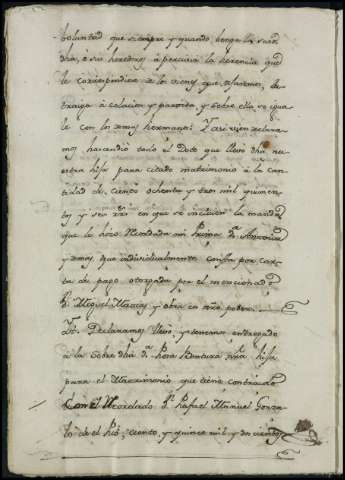 boluntad que siempre y quando venga la suso
dha, ò sus herederos à percivir la herencia que
le correspondiere de los vienes que dejaremos, de
traiga à colacion y particion, y sobre ella, se ygua
le con los demas hermanos: Y asi vien declara
mos hascendio todo el Dote que llevó dha nu
estra hija para citado matrimonio à la can
tidad de, ciento ochenta y tres mil quinien
tos y seis rrs. en que se incluien la manda
que le hizo Nicolasa mi Prima Dª. Antonia
y demas que individualmente consta por car
ta de pago otorgada por el mencionado
Dn. Miguel Macias y obra en nro poder.
Yt. Declaramos llevó, y tenemos entregado
à la sobre dha Dª. Rosa Ventura nra hija
para el Matrimonio que tiene contraido
con el Nicolado Dn. Rafael Manuel Gonza
lez de el Rio, ciento, y quince mil y doscientos